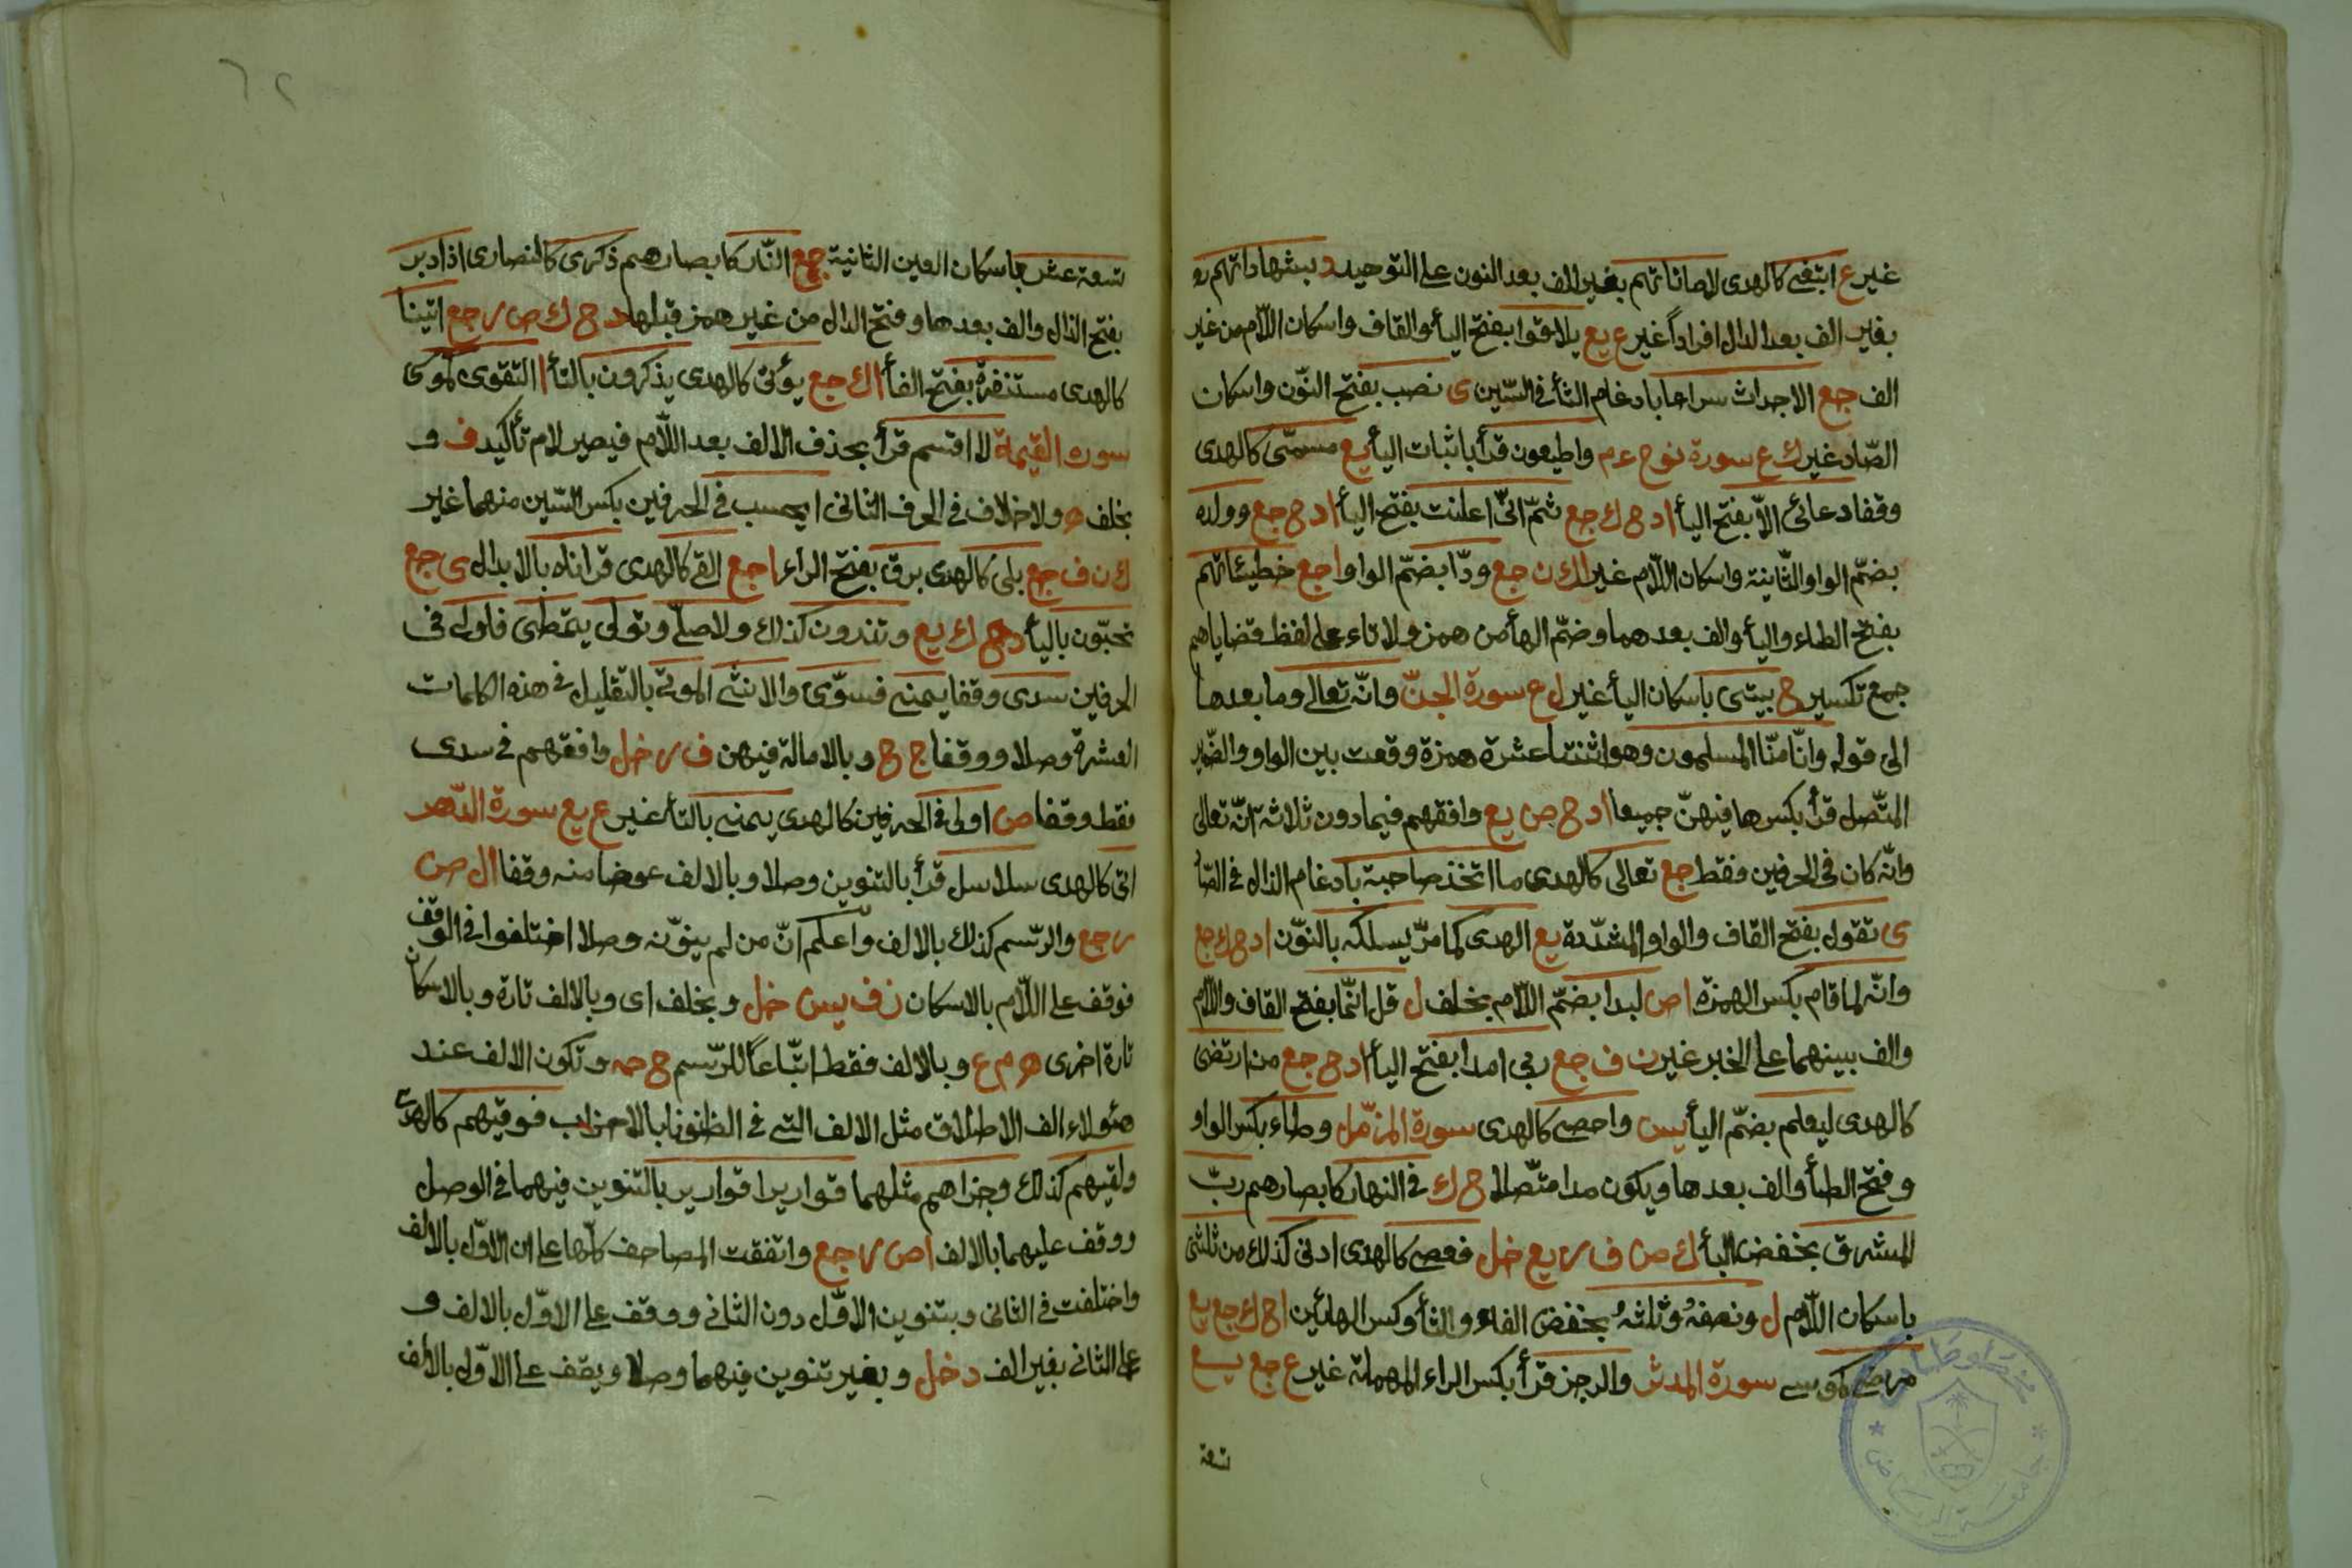 غير ع ابتغى كالهدى لاماناتهم بغير الف بعد النون على التوحيد د بشهاداتهم
بغير الف بعد الدال افرادا غير ع يع يلاقوا بفتح اليأ والقاف واسكان اللّام من غير
الف جع الاجداث سراعا بادغام الثأ فى السّين ى نصب بفتح النّون واسكان
الصّاد غير ك ع سورة نوح ع م واطيعون قرأ باثبات اليأ يع مسمّى كالهدى
وقفا دعائى الاّ بفتح اليأ ا د ح ك جع ثمّ انّى اعلنت بفتح اليأ ا د ح جع وولده
بضمّ الواو الثّانية واسكان اللّام غير ا ك ن جع ودّا بضمّ الواو ا جع خطيئاتهم
بفتح الطاء واليأ والف بعدهما وضمّ الهأ من همز ولا تاء على لفظ قضاياهم
جمع تكسير ح بيتى باسكان اليأ غير ل ع سورة الجنّ وانّه تعالى وما بعدها
الى قوله وانّا منّا المسلمون وهو اثنتا عشرة همزة وقعت بين الواو والضّمير
المتّصل قرأ بكسرها فيهنّ جميعا ا د ح ص يع وافقهم فيما دون ثلاثة انّه تعالى
وانّه كان فى الحرفين فقط جع تعالى كالهدى ما اتخذ صاحبة بادغام الذال فى الصّا
ى تقول بفتح القاف والواو المشدّدة يع الهدى كما مرّ يسلكه بالنّون ا د ح ك جع
وانّه لما قام بكسر الهمزة ا ص لبدا بضمّ اللّام بخلف ل قل انّما بفتح القاف واللّام
والف بينهما على الخبر غير ن ف جع ربى امدا بفتح اليأ ا د ح جع من ارتضى
كالهدى ليعلم بضمّ اليأ يس واحصى كالهدى سورة المزّمّل وطاء بكسر الواو
وفتح الطأ والف بعدها ويكون مدا متّصلا ح ك فى النهار كابصارهم ربّ
المشرق بخفض البأ ك ص ف ر يع خل فعصى كالهدى ادنى كذلك من ثلثى
باسكان اللّام ل ونصفهُ وثلثهُ بخفض الفاء والثأ وكسر الهائين ا ح ك جع يع
مرضى كموسى سورة المدثر والرجز قرأ بكسر الراء المهملة غير ع جع يع
تسعة
٦٢
تسعة عشر باسكان العين الثانية جع النّار كابصارهم ذكرى كالنصارى اذا دبر
بفتح الذال والف بعدها وفتح الدال من غير همز قبلها د ح ك ص ر جع اتينا
كالهدى مستنفرة بفتح الفأ ا ك جع يؤتى كالهدى يذكرون بالتأ ا التقوى كموسى
سوره القيمة لا اقسم قرأ بحذف الالف بعد اللّام فيصير لام تأكيد ف و
بخلف ه ولا خلاف فى الحرف الثانى ايحسب فى الحرفين بكسر السّين منهما غير
ك ن ف جع بلى كالهدى برق بفتح الراء ا جع القى كالهدى قراناه بالابدال ى جع
تحبّون باليأ د ح ك يع وتذرون كذلك ولا صلّى وتولى يتمطى فاولى فى
الحرفين سدى وقفا يمنى فسوّى والانثى الموتى بالتقليل فى هذه الكلمات
العشرة وصلا ووقفا ج ح وبالامالة فيهن ف ر خل وافقهم فى سدى
فقط وقفا ص اولى فى الحرفين كالهدى يمنى بالتأ غير ع يع سورة الدّهر
اتى كالهدى سلاسل قرأ بالتنوين وصلا وبالالف عوضا منه وقفا ا ل ص
ر جع والرّسم كذلك بالالف واعلم انّ من لم ينوّنه وصلا اختلفوا فى الوقف
فوقف على اللّام بالاسكان ز ف يس خل وبخلف اى وبالالف تارة وبالاسكان
تارة اخرى ه م ع وبالالف فقط اتّباعاً للرّسم ح حه وتكون الالف عند
هئولاء الف الاطلاق مثل الالف التى فى الظنونا بالاحزاب فوقيهم كالهدى
ولقيهم كذلك وجزاهم مثلهما قواريرا قوارير بالتنوين فيهما فى الوصل
ووقف عليهما بالالف ا ص ر جع واتفقت المصاحف كلّها على ان الاوّل بالالف
واختلفت فى الثانى وبتنوين الاوّل دون الثانى ووقف على الاوّل بالالف و
على الثانى بغير الف د خل وبغير تنوين فيهما وصلا ويقف على الاوّل بالالف